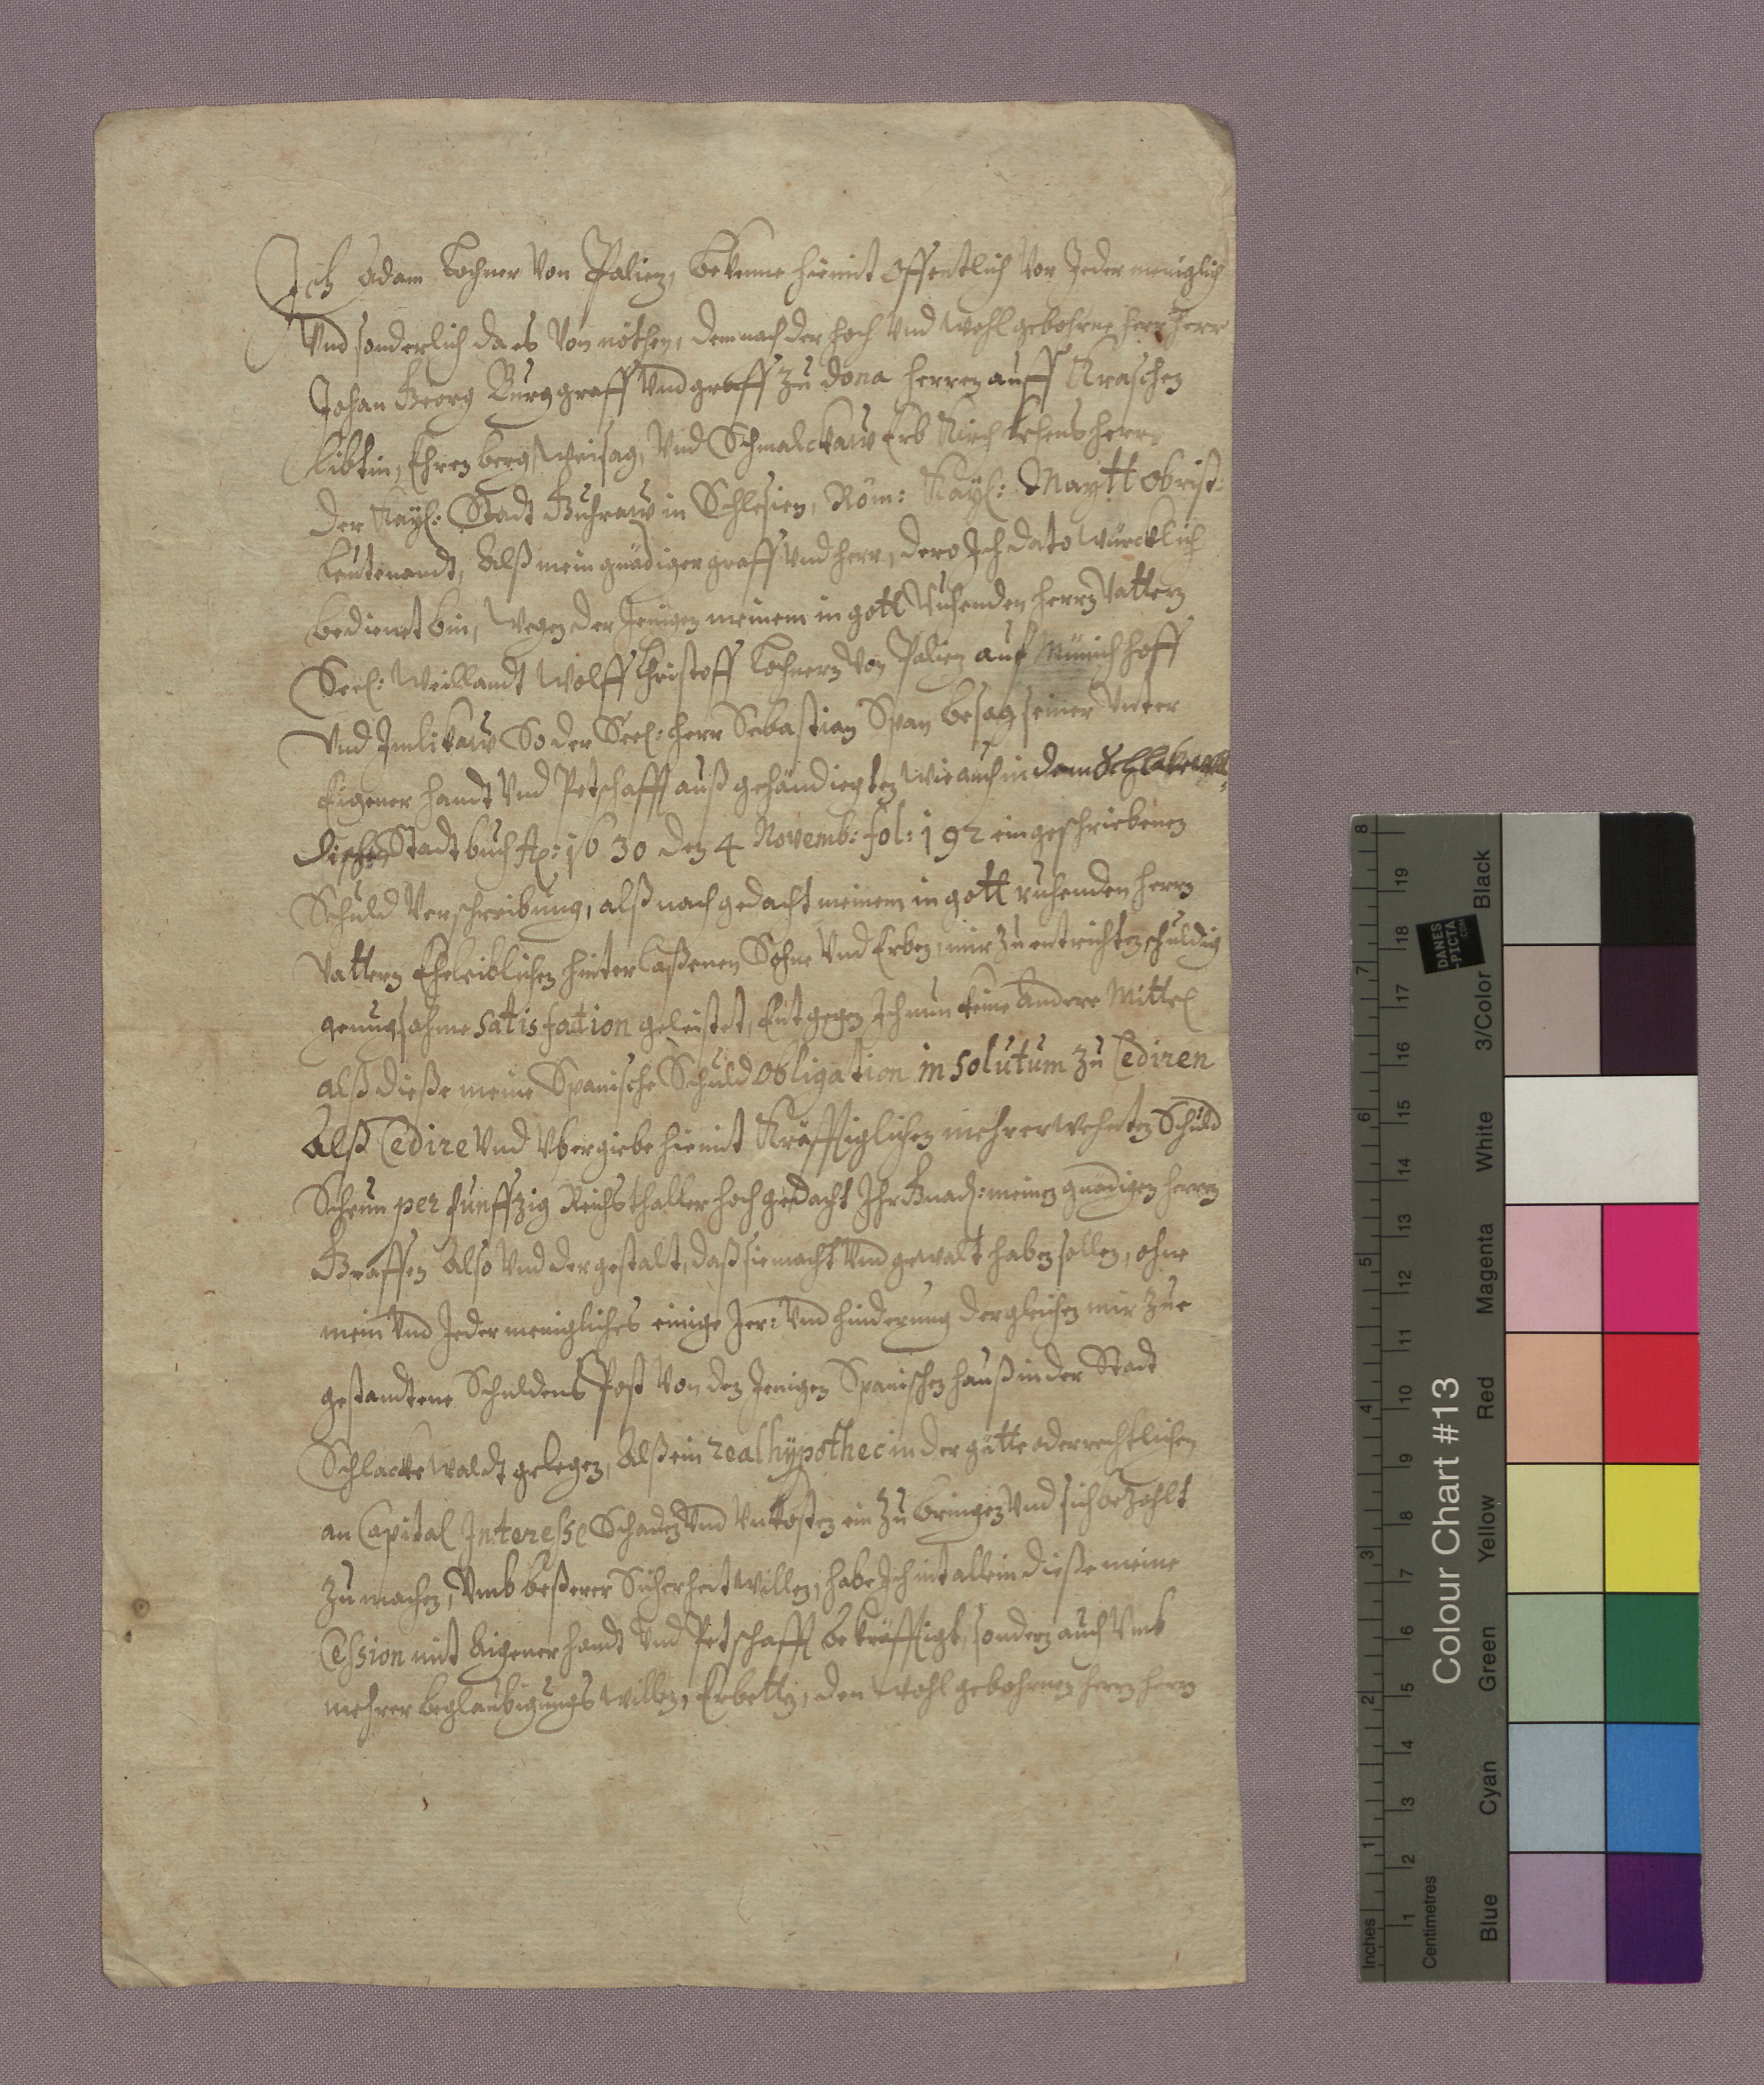 Ich Adam Lochner Von Paliez, bekenne hiemit offentlich Vor Jeder meniglich
Vnd sonderlich da es Von nöthen, demnach der hoch Vnd Wohlgebohrne herr Herr
Johan Georg Burggraff Vnd graff zu dona herren auff Kraschen
Ehrenberg, Weisag, Vnd Schmalckaw Erb Kirch Lehensherr
der Kaÿs: Stadt Guhraw in Schlesien, Röm: Kaÿs: Maÿtt obrist
Leutenandt, Alß mein gnädiger graff Vnd herr, dero Ich dato würcklich
bedienet bin, Wegen der Jenigen meinem in gott Ruhenden herrn Vattern
Seel: Weillandt Wolff Christoff Lochnern Von Palien auf Münichhoff
Vnd Imlikaw So der Seel: herr Sebastian Span besag seiner Vnter
Eigener handt Vnd Petschafft außgehändiegten wie auch in dem Schlakewal
dischen Stadtbuch Ao: 1630 den 4 Novemb: fol: 192 eingeschriebenen
Schuld Verschreibung, alß nachgedacht meinem in gott ruhenden herrn
Vattern Eheleiblichen hinterlaßenen Sohne Vnd Erben, mir zu entrichten schuldig
genugsahme satisfation geleistet, Entgegen Ich nun keine andere Mittel
alß dieße meine Spanische Schuld Obligation in solutum zu Cediren
Alß Cedire Vnd Vbergiebe hiemit Kräfftiglichen mehrerwehnten Schuld
Schein per funffzig Reichsthaller hochgedacht Ihr Gnad: meinen gnädigen herren
Graffen Also Vnd dergestalt, daß sie macht Vnd gewalt haben sollen, ohne
mein Vnd Jedermeniglichs einige Irr: Vnd hinderung dergleichen mir zue
gestandtene Schuldens Post Von den Jenigen Spanischen hauß in der Stadt
Schlackewaldt gelegen, Alß ein real hÿpothec in der gütte oder rechtlichen
an Capital Interesse Schaden Vnd Vnkosten ein zu bringen Vnd sich bezahlt
zu machen, Vmb beßerer Sicherheit Willen, habe Ich nit allein dieße meine
Cession mit Aigener handt Vnd Petschafft bekräfftigt, sondern auch Vmb
mehrer beglaubigungs willen, Erbetten, den Wohlgebohrnen herrn herrn
Inches
1
2
3
4
5
6
7
8
Centimetres
1
2
3
4
5
6
7
8
9
10
11
12
13
14
15
16
17
18
19
Colour Chart #13
DANES
-PICTA
.COM
Blue
Cyan
Green
Yellow
Red
Magenta
White
3/Color
Black